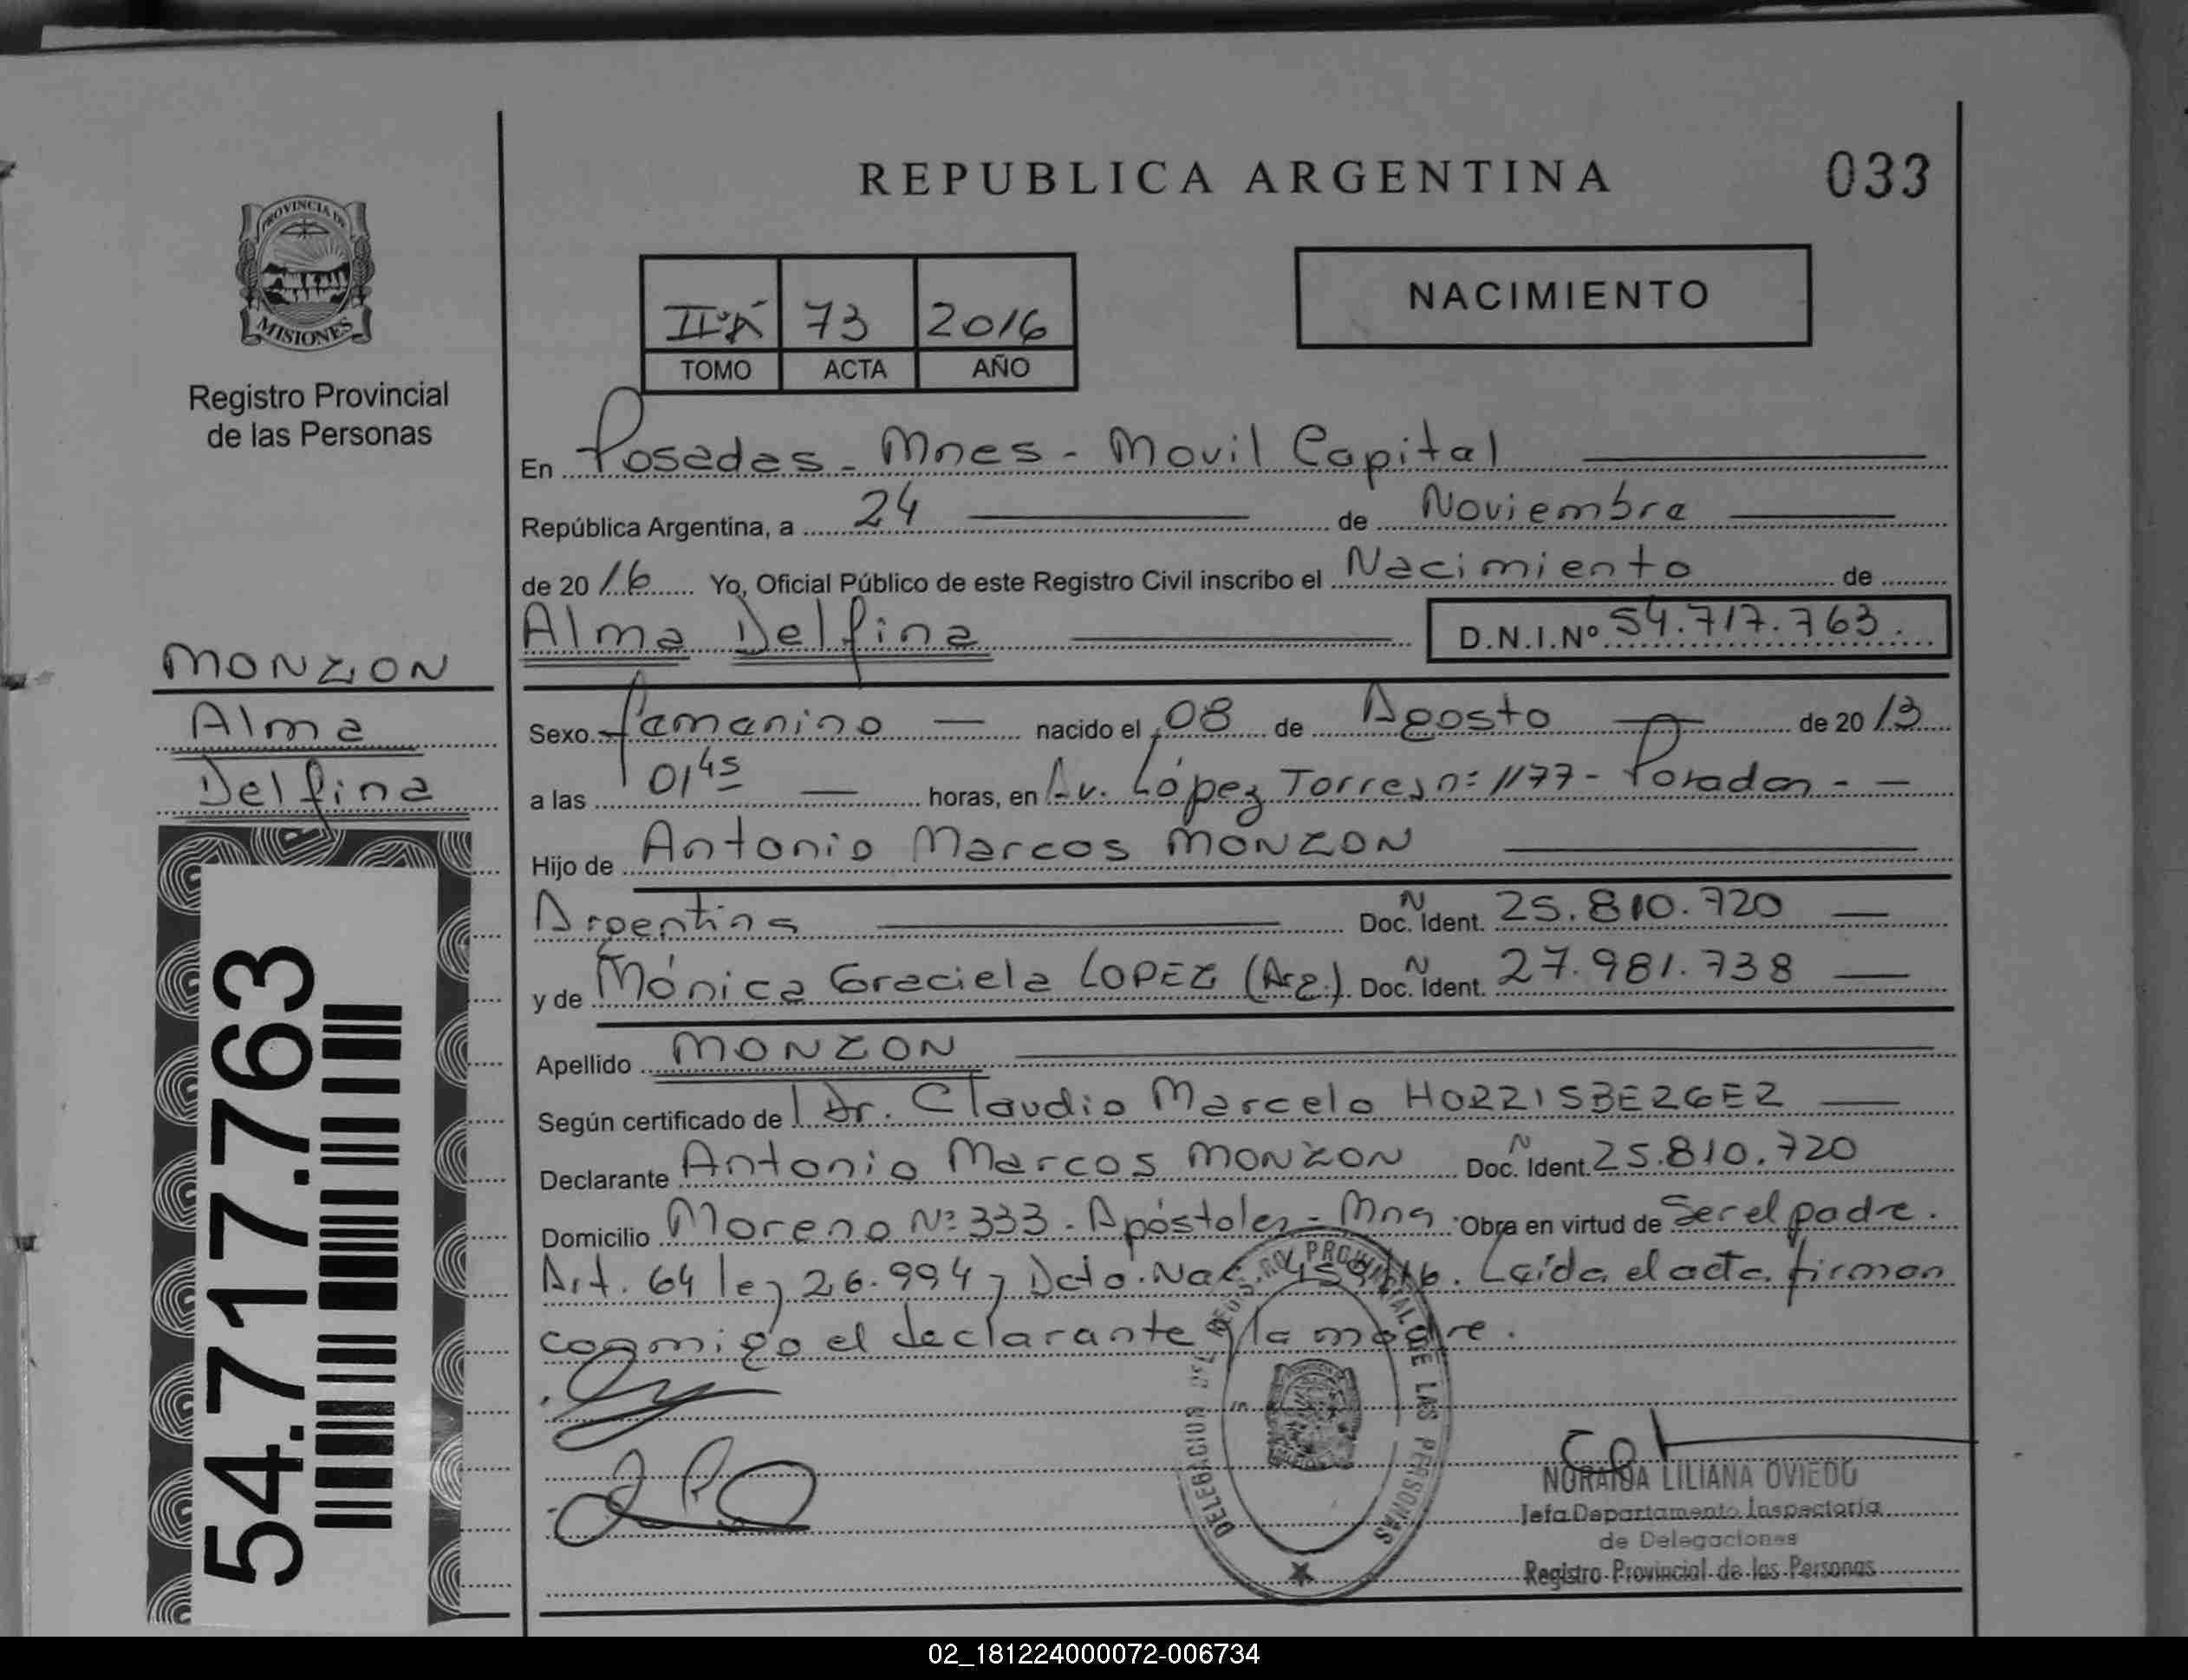 REPUBLICA ARGENTINA
033
PROVINCIA DE
MISIONES
Registro Provincial
de las Personas
II°A 73 2016
TOMO ACTA AÑO
NACIMIENTO
En Posadas - Mnes - Movil Capital
República Argentina, a 24 de Noviembre
de 2016 Yo, Oficial Público de este Registro Civil inscribo el Nacimiento de
Alma Delfina D.N.I.Nº 54.717.763
MONZON
Alma
Delfina
54.717.763
Sexo femenino nacido el 08 de Agosto de 2013
a las 01 45 horas, en Av. López Torres nº 1177 - Posadas -
Hijo de Antonio Marcos MONZON
Argentina Doc. Ident. N 25.810.720
y de Mónica Graciela LOPEZ (Arg.) Doc. Ident. N 27.981.738
Apellido MONZON
Según certificado de Dr. Claudio Marcelo HORRISBERGER
Declarante Antonio Marcos MONZON Doc. Ident. N 25.810.720
Domicilio Moreno Nº 333 - Apóstoles - Mns Obra en virtud de Ser el padre.
Art. 64 ley 26.994 y Dcto. Nac. Leída el acta firman
conmigo el declarante y la madre.
DELEGACION DEL REGISTRO PROVINCIAL DE LAS PERSONAS
NORAIDA LILIANA OVIEDO
Jefa Departamento Inspectoria
de Delegaciones
Registro Provincial de las Personas
02_181224000072-006734